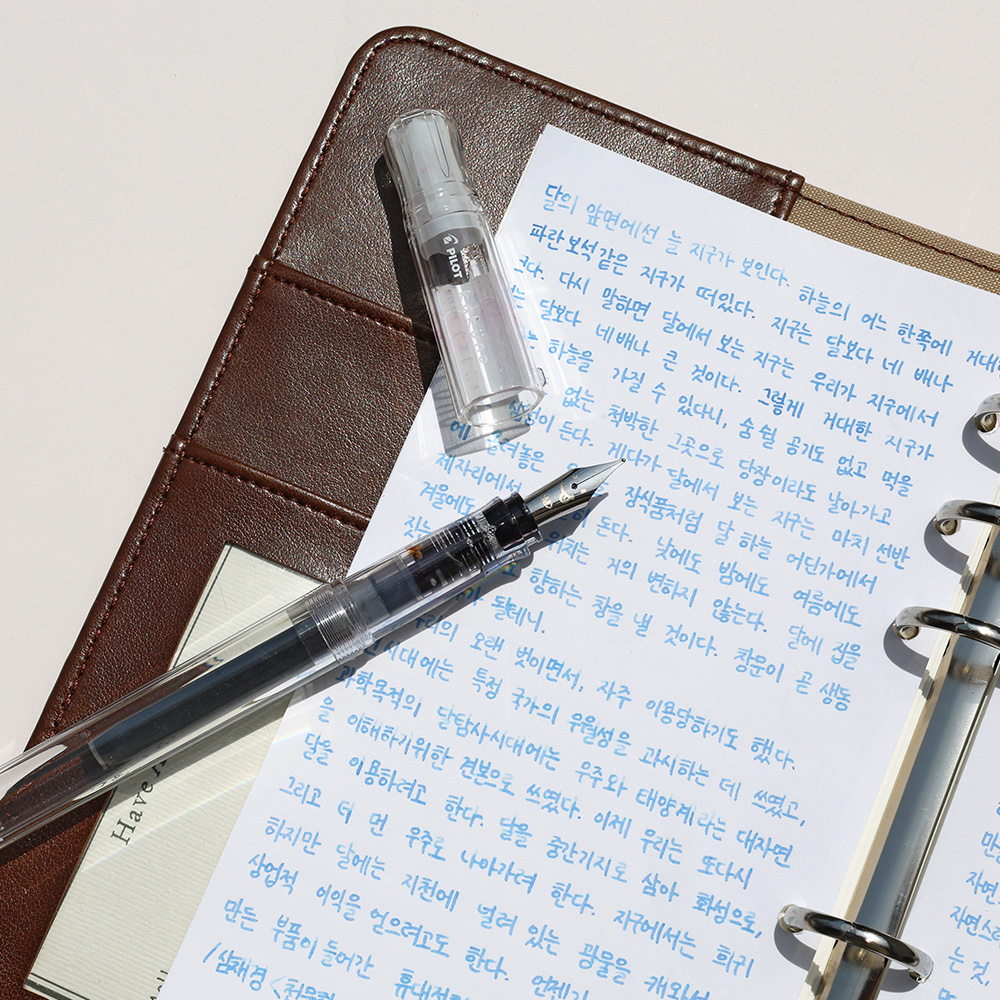 PILOT
달의 앞면에선 늘 지구가 보인다. 하늘의 어느 한쪽에 거대한
파란보석같은 지구가 떠있다. 지구는 달보다 네 배나
크다. 다시 말하면 달에서 보는 지구는 우리가 지구에서
달보다 네배나 큰 것이다. 그렇게 거대한 지구가
하늘을 가질 수 있다니, 숨 쉴 공기도 없고 먹을
없는 척박한 그곳으로 당장이라도 날아가고
심정이 든다. 게다가 달에서 보는 지구는 마치 선반
에 올려놓은 장식품처럼 달 하늘 어딘가에서
제자리에서 돈다. 낮에도 밤에도 여름에도
겨울에도 위치는 거의 변하지 않는다. 달에 집을
짓는 향하는 창을 낼 것이다. 창문이 곧 생동
될테니.
우리의 오랜 벗이면서, 자주 이용당하기도 했다.
시대에는 특정 국가의 우월성을 과시하는 데 쓰였고,
과학목적의 달탐사시대에는 우주와 태양계라는 대자연
을 이해하기위한 견본으로 쓰였다. 이제 우리는 또다시
달을 이용하려고 한다. 달을 중간기지로 삼아 화성으로,
그리고 더 먼 우주로 나아가려 한다. 지구에서는 희귀
하지만 달에는 지천에 널려 있는 광물을 캐와서
상업적 이익을 얻으려고도 한다. 언젠가
만든 부품이 들어간
/심채경
Have
자연
자연스
는 것,